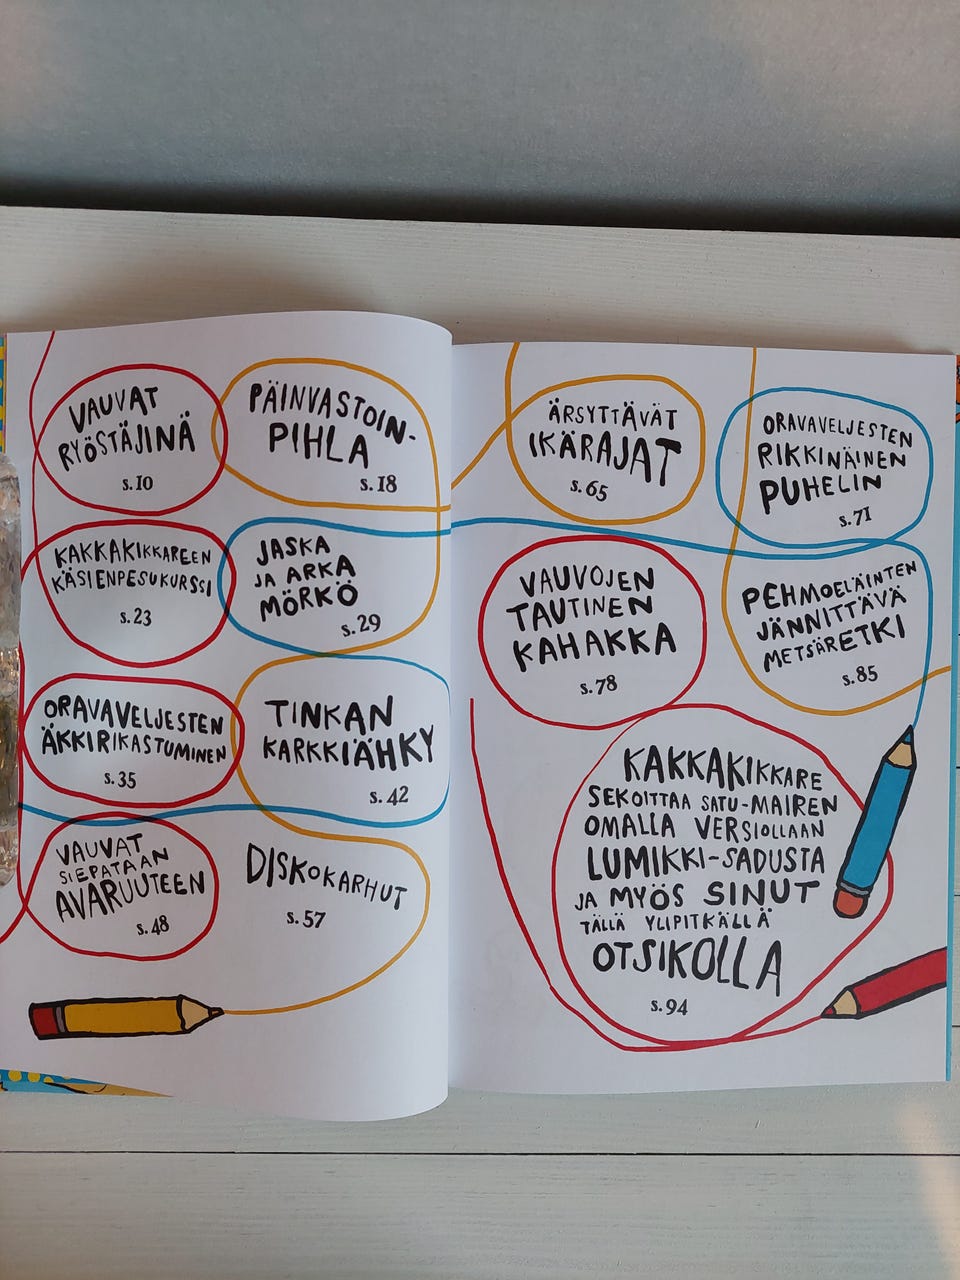 VAUVAT
RYÖSTÄJINÄ
s.10
PÄINVASTOIN-
PIHLA
s.18
KAKKAKIKKAREEN
KÄSIENPESUKURSSI
s.23
JASKA
JA ARKA
MÖRKÖ
s.29
ORAVAVELJESTEN
ÄKKIRIKASTUMINEN
s.35
TINKAN
KARKKIÄHKY
s.42
VAUVAT
SIEPATAAN
AVARUUTEEN
s.48
DISKOKARHUT
s.57
ÄRSYTTÄVÄT
IKÄRAJAT
s.65
ORAVAVELJESTEN
RIKKINÄINEN
PUHELIN
s.71
VAUVOJEN
TAUTINEN
KAHAKKA
s.78
PEHMOELÄINTEN
JÄNNITTÄVÄ
METSÄRETKI
s.85
KAKKAKIKKARE
SEKOITTAA SATU-MAIREN
OMALLA VERSIOLLAAN
LUMIKKI-SADUSTA
JA MYÖS SINUT
TÄLLÄ YLIPITKÄLLÄ
OTSIKOLLA
s.94